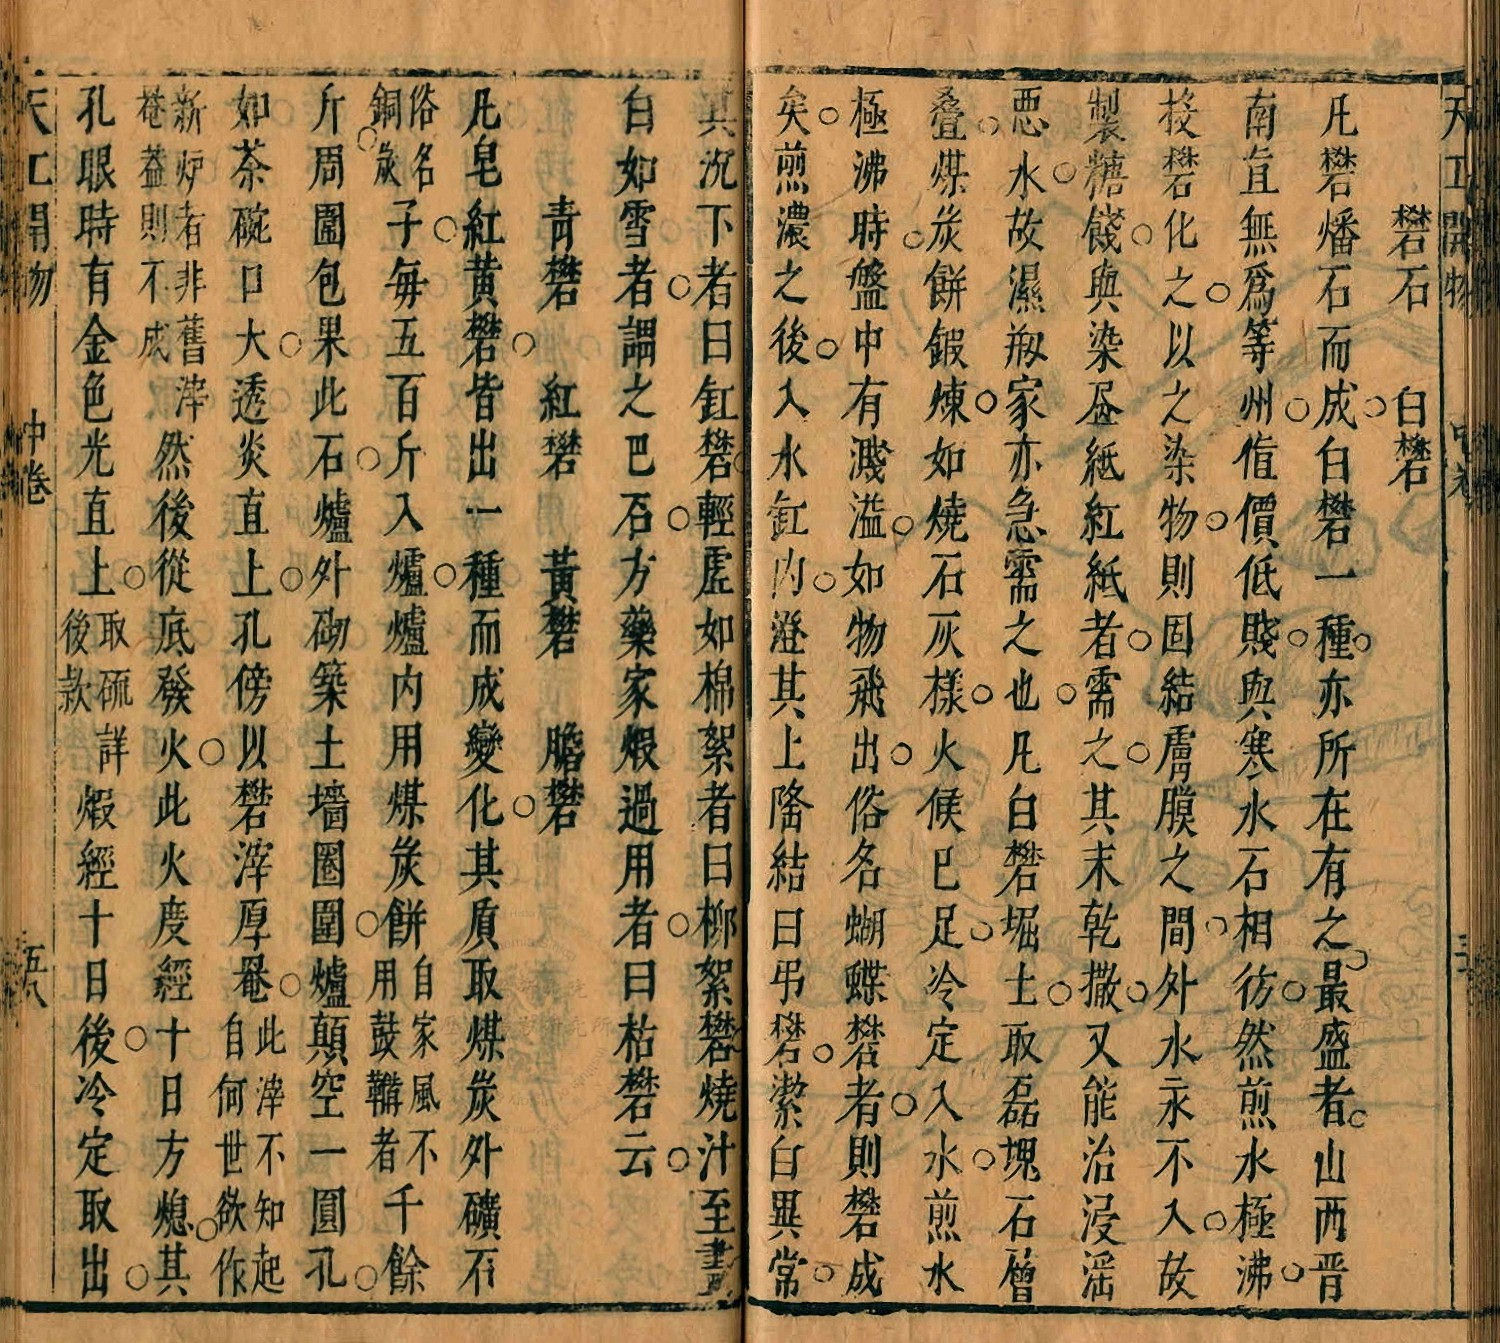 天工開物 中卷
礬石 白礬
凡礬燔石而成白礬一種亦所在有之最盛者山西晉
南直無爲等州值價低賤與寒水石相彷然煎水極沸
投礬化之以之染物則固結膚膜之間外水永不入故
製糖餞與染畫紙紅紙者需之其末乾撒又能治浸淫
惡水故濕瘡家亦急需之也凡白礬堀土取磊塊石層
疊煤炭餅鍛煉如燒石灰樣火候已足冷定入水煎水
極沸時盤中有濺溢如物飛出俗名蝴蝶礬者則礬成
矣煎濃之後入水缸內澄其上隆結曰吊礬潔白異常
其沉下者曰缸礬輕虛如棉絮者曰柳絮礬燒汁至盡
白如雪者謂之巴石方藥家煆過用者曰枯礬云
青礬 紅礬 黃礬 膽礬
凡皂紅黃礬皆出一種而成變化其質取煤炭外礦石
俗名銅炭子每五百斤入爐爐內用煤炭餅自家風不用鼓鞴者千餘
斤周圍包果此石爐外砌築土墻圈圍爐顛空一圓孔
如茶碗口大透炎直上孔傍以礬滓厚罨此滓不知起自何世欲作
新炉者非舊滓菴蓋則不成然後從底發火此火度經十日方熄其
孔眼時有金色光直上取硫詳後款煆經十日後冷定取出
天工開物 中卷 五八